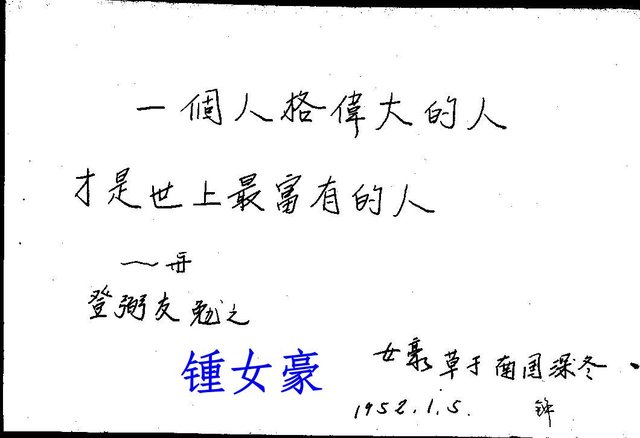 一個人格偉大的人
才是世上最富有的人
登弼友勉之
锺女豪
女豪草于南国深冬、
1952.1.5. 钟